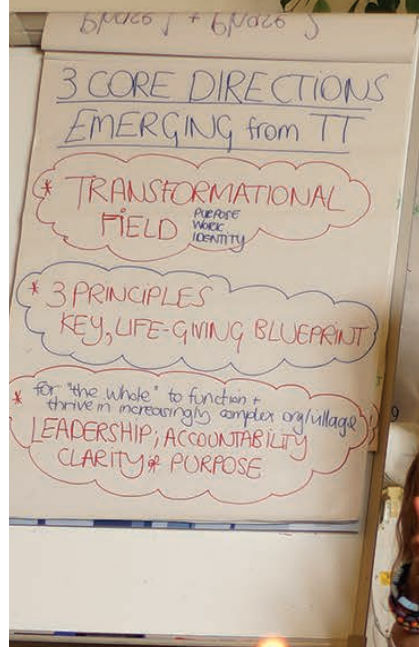 3 CORE DIRECTIONS
EMERGING from TT
* TRANSFORMATIONAL
FIELD PURPOSE
WORK
IDENTITY
* 3 PRINCIPLES
KEY, LIFE-GIVING BLUEPRINT
* for "the whole" to function +
thrive in increasingly complex org/village
LEADERSHIP, ACCOUNTABILITY
CLARITY & PURPOSE